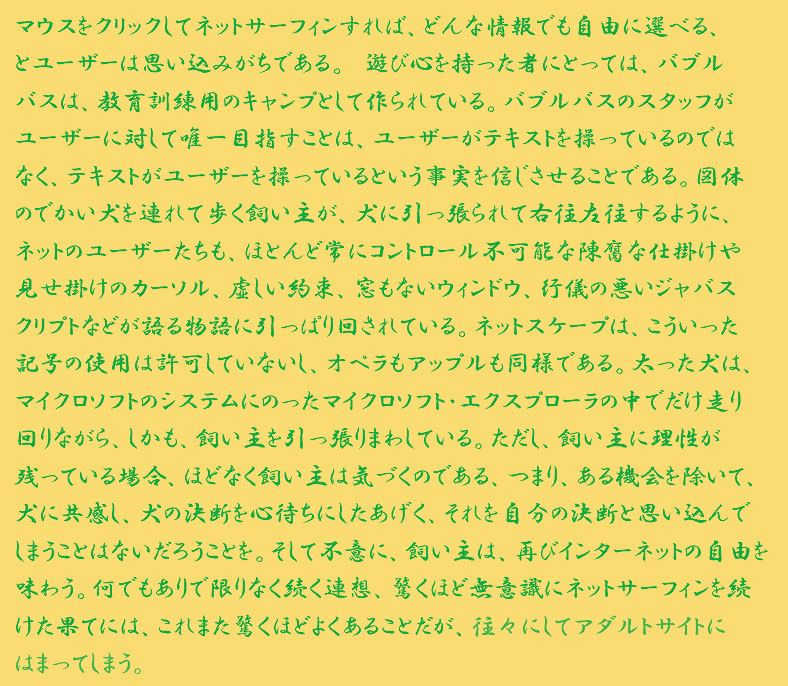 マウスをクリックしてネットサーフィンすれば、どんな情報でも自由に選べる、
とユーザーは思い込みがちである。 遊び心を持った者にとっては、バブル
バスは、教育訓練用のキャンプとして作られている。バブルバスのスタッフが
ユーザーに対して唯一目指すことは、ユーザーがテキストを操っているのでは
なく、テキストがユーザーを操っているという事実を信じさせることである。図体
のでかい犬を連れて歩く飼い主が、犬に引っ張られて右往左往するように、
ネットのユーザーたちも、ほとんど常にコントロール不可能な陳腐な仕掛けや
見せ掛けのカーソル、虚しい約束、窓もないウィンドウ、行儀の悪いジャバス
クリプトなどが語る物語に引っぱり回されている。ネットスケープは、こういった
記号の使用は許可していないし、オペラもアップルも同様である。太った犬は、
マイクロソフトのシステムにのったマイクロソフト・エクスプローラの中でだけ走り
回りながら、しかも、飼い主を引っ張りまわしている。ただし、飼い主に理性が
残っている場合、ほどなく飼い主は気づくのである、つまり、ある機会を除いて、
犬に共感し、犬の決断を心待ちにしたあげく、それを自分の決断と思い込んで
しまうことはないだろうことを。そして不意に、飼い主は、再びインターネットの自由を
味わう。何でもありで限りなく続く連想、驚くほど無意識にネットサーフィンを続
けた果てには、これまた驚くほどよくあることだが、往々にしてアダルトサイトに
はまってしまう。